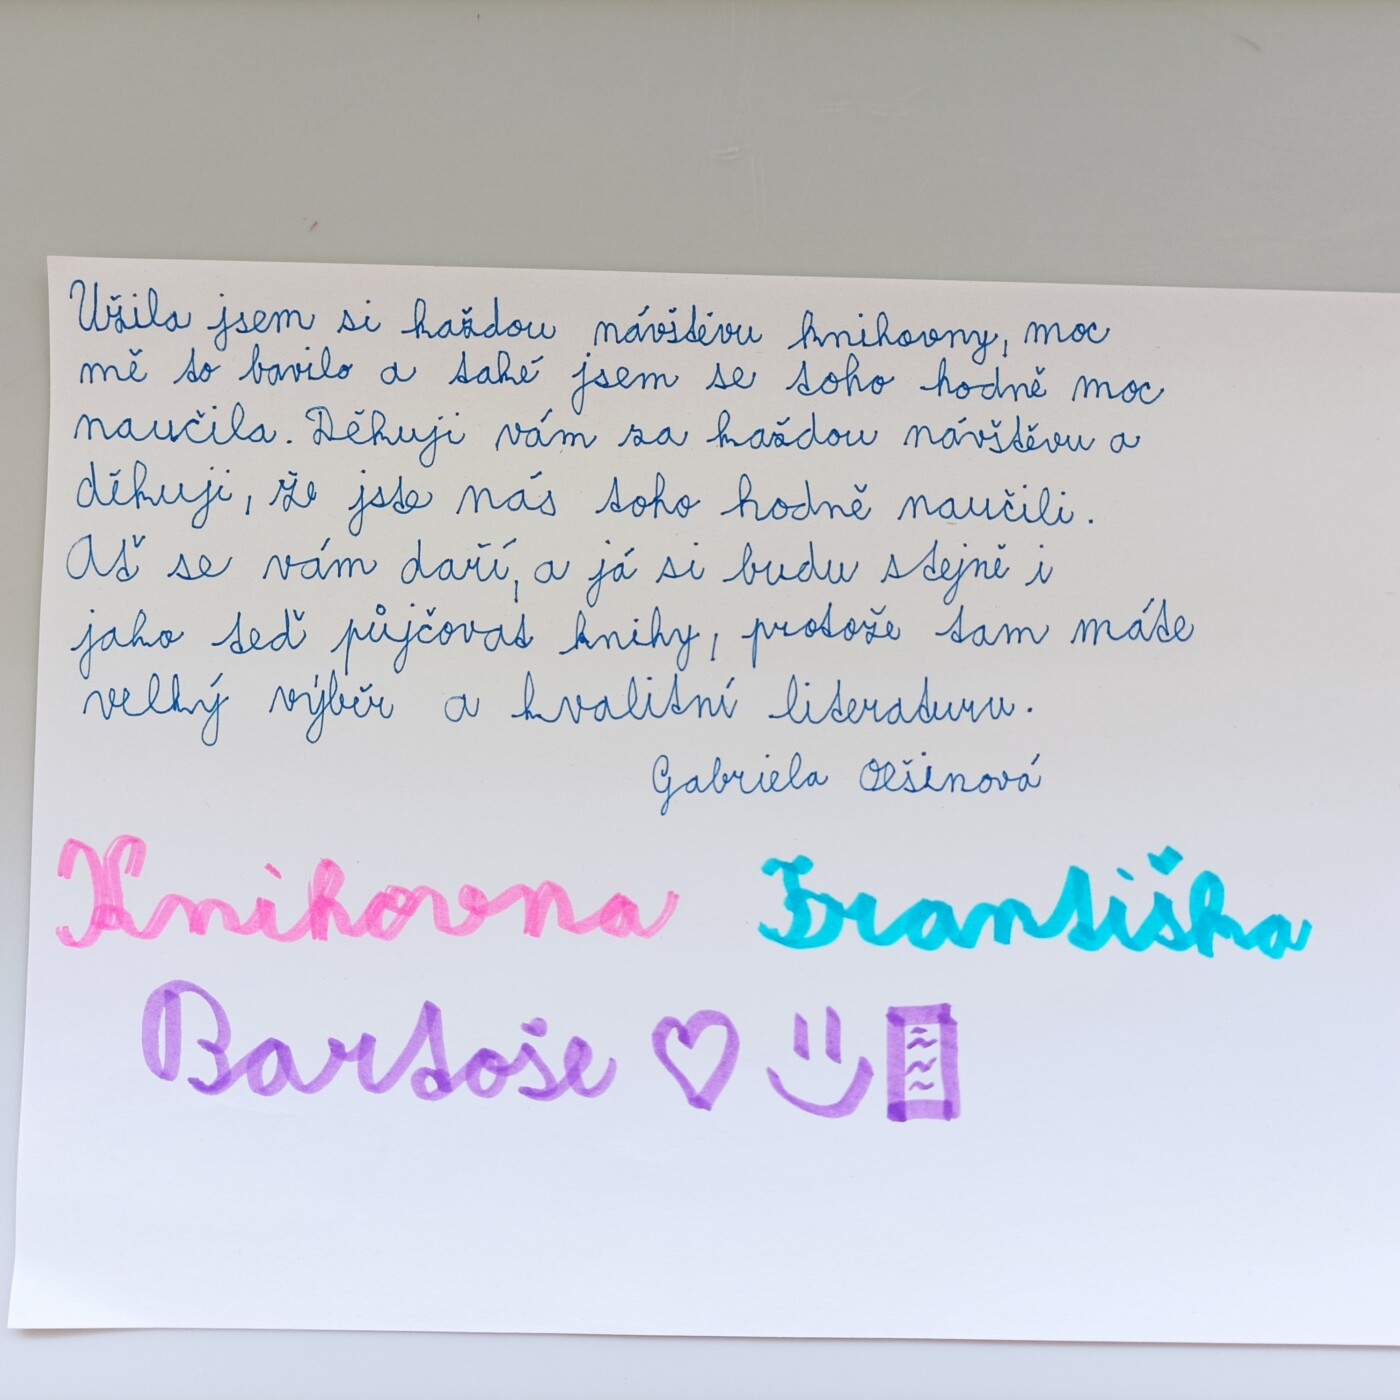 Užila jsem si každou návštěvu knihovny, moc
mě to bavilo a také jsem se toho hodně moc
naučila. Děkuji vám za každou návštěvu a
děkuji, že jste nás toho hodně naučili.
Ať se vám daří, a já si budu stejně i
jako teď půjčovat knihy, protože tam máte
velký výběr a kvalitní literaturu.
Gabriela Olšinová
Knihovna Františka
Bartoše